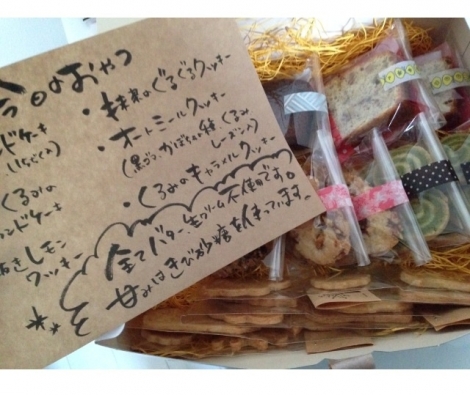 今日のおやつ
・抹茶のぐるぐるクッキー
・オートミールクッキー
(黒ゴマ、かぼちゃの種、くるみ
レーズン入)
・くるみのキャラメルクッキー
ンドケーキ
(いちじく)
くるみの
ウンドケーキ
レモン
クッキー
全てバター、生クリーム不使用です。
甘みはきび砂糖を使っています。